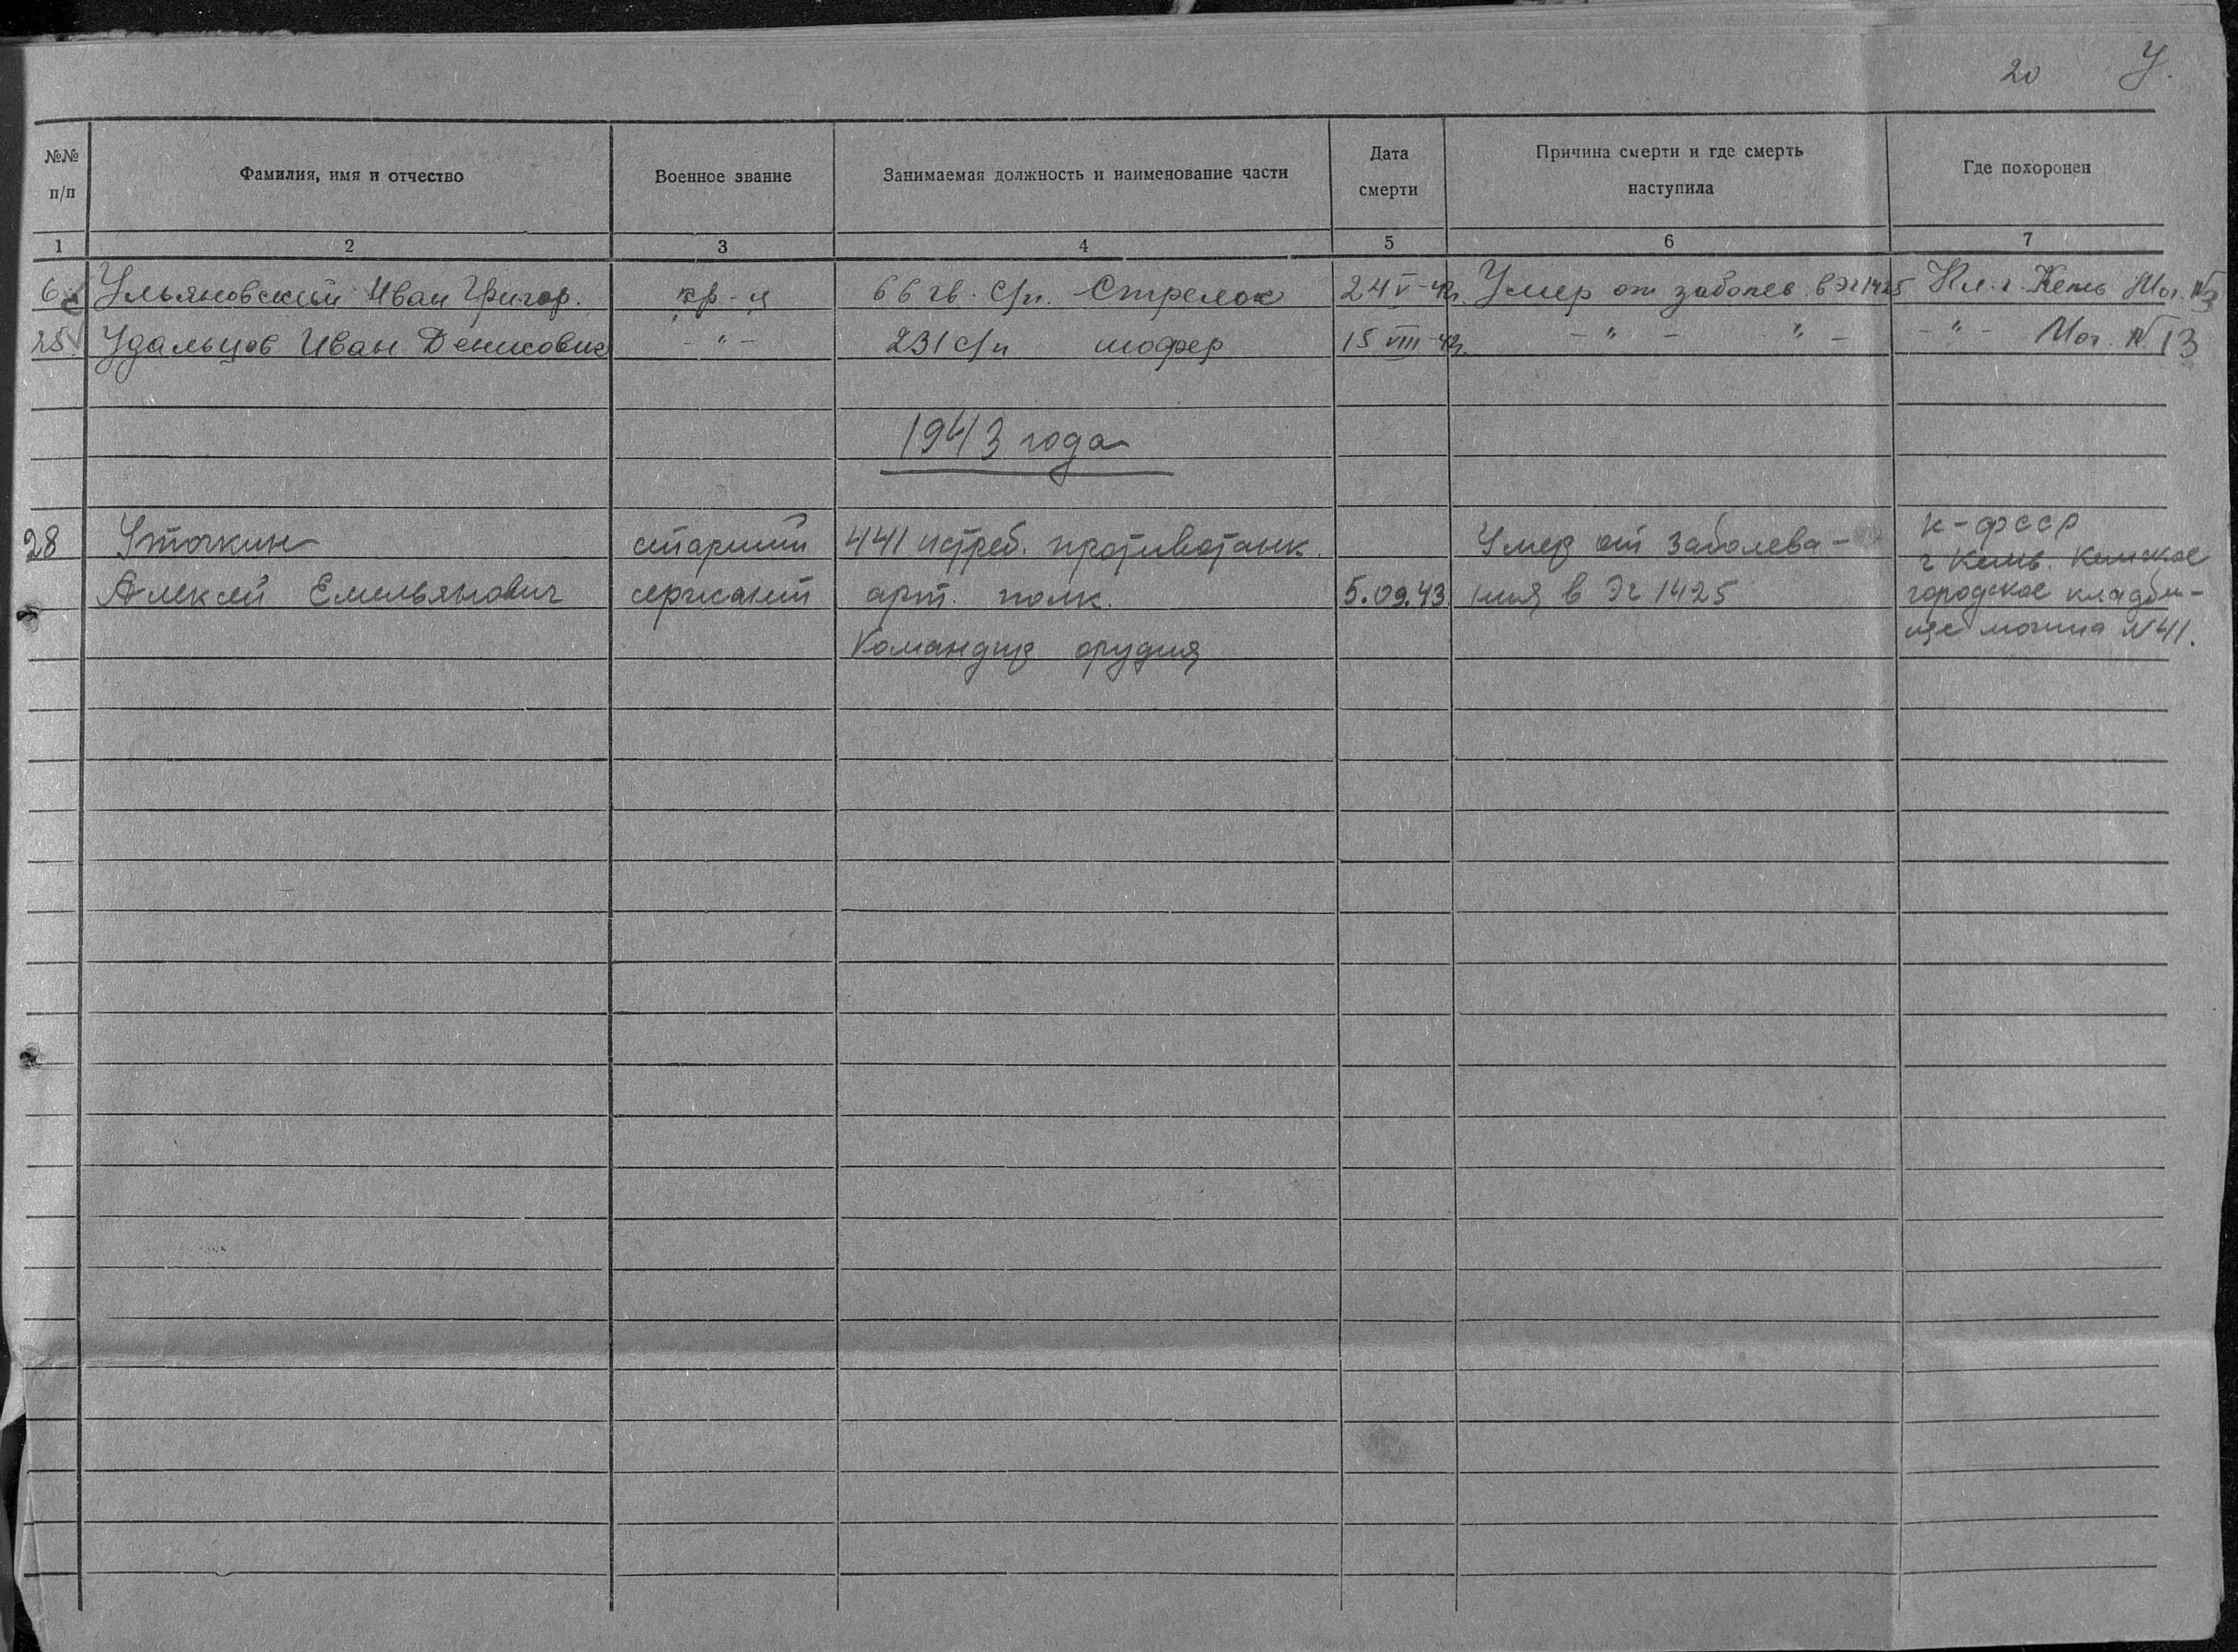 20 У.
№№ п/п
Фамилия, имя и отчество
Военное звание
Занимаемая должность и наименование части
Дата смерти
Причина смерти и где смерть наступила
Где похоронен
1 2 3 4 5 6 7
6 Ульяновский Иван Григор. кр-ц 66 гв. с/п. Стрелок 24 V-42г. Умер от заболев. в ЭГ 1425 Кл. г. Кемь Мог. №3
25 Удальцов Иван Денисович - " - 231 с/п шофер 15 VIII-42г. - " - " - - " - Мог. № 13
1943 года
28 Уточкин старший 441 истреб. противотанк. Умер от заболева- К-ФССР
г Кемь. Кемское
Алексей Емельянович сержант арт. полк. 5.09.43 ния в ЭГ 1425 городское кладби-
Командир орудия ще могила №41.